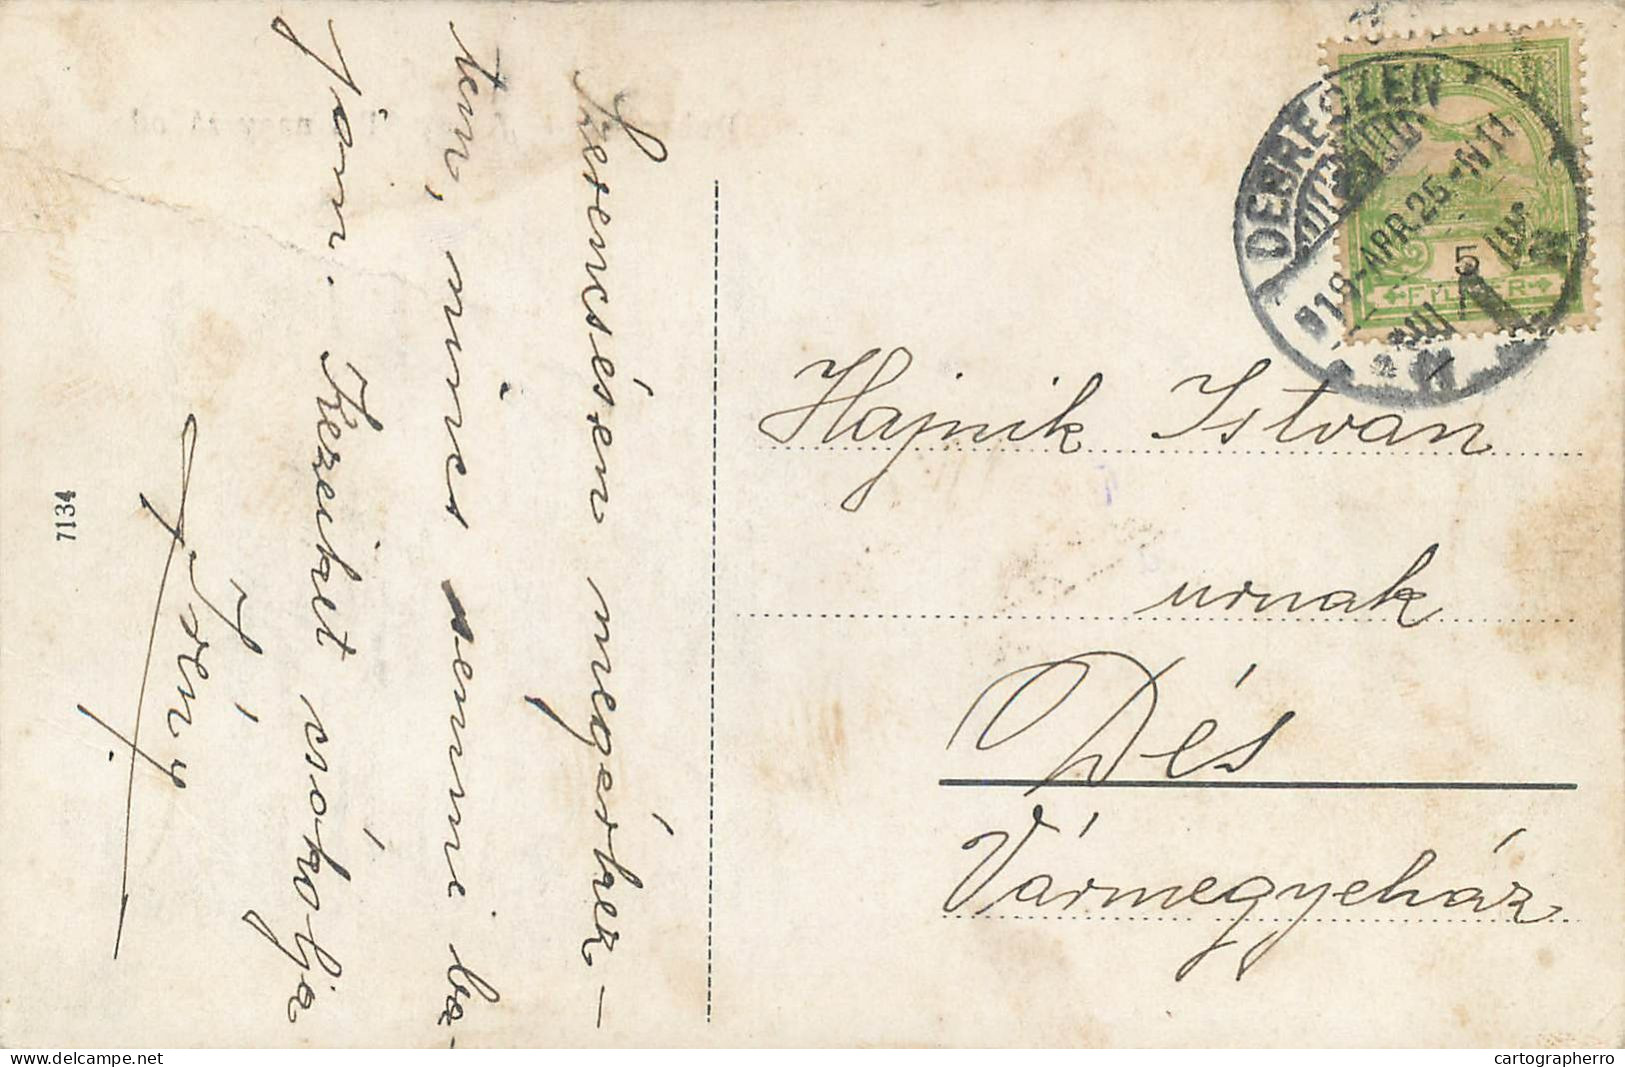 Szerencsésen megérkez-
tem, nincs semmi ba-
jom. Kezeiket csókolja
Irény
7134
DEBRECZEN
918 APR.25.-N11
5
FILLÉR
Hajnik Istvan
urnak
Dés
Vármegyeház
delcampe.net
cartographerro